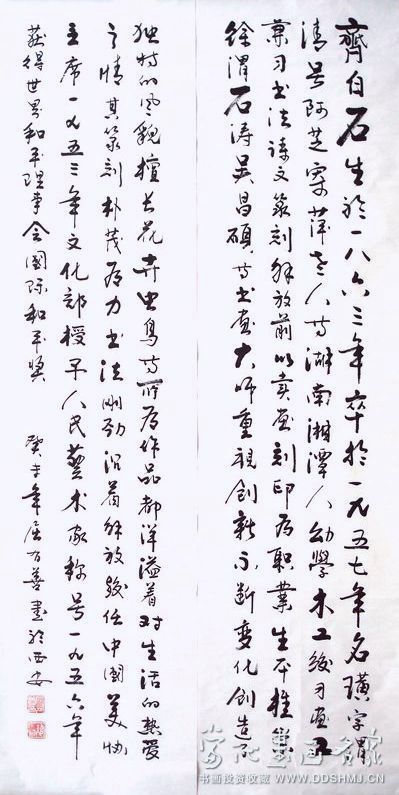 齊白石生於一八六三年卒於一九五七年名璜字渭
清号阿芝寄萍老人等湖南湘潭人幼學木工後习画
兼习书法诗文篆刻解放前以卖画刻印为职業生平推崇
徐渭石涛吴昌碩等书画大师重視创新不断变化创造
独特的风貌擅长花卉虫鸟等所为作品都洋溢着对生活的热爱
之情其篆刻朴茂有力书法刚劲沉着解放後任中國美协
主席一九五三年文化部授予人民藝术家称号一九五六年
获得世界和平理事会國际和平奖
年 有善書於西安
当代书画名家
书画投资收藏 WWW.DDSHMJ.CN